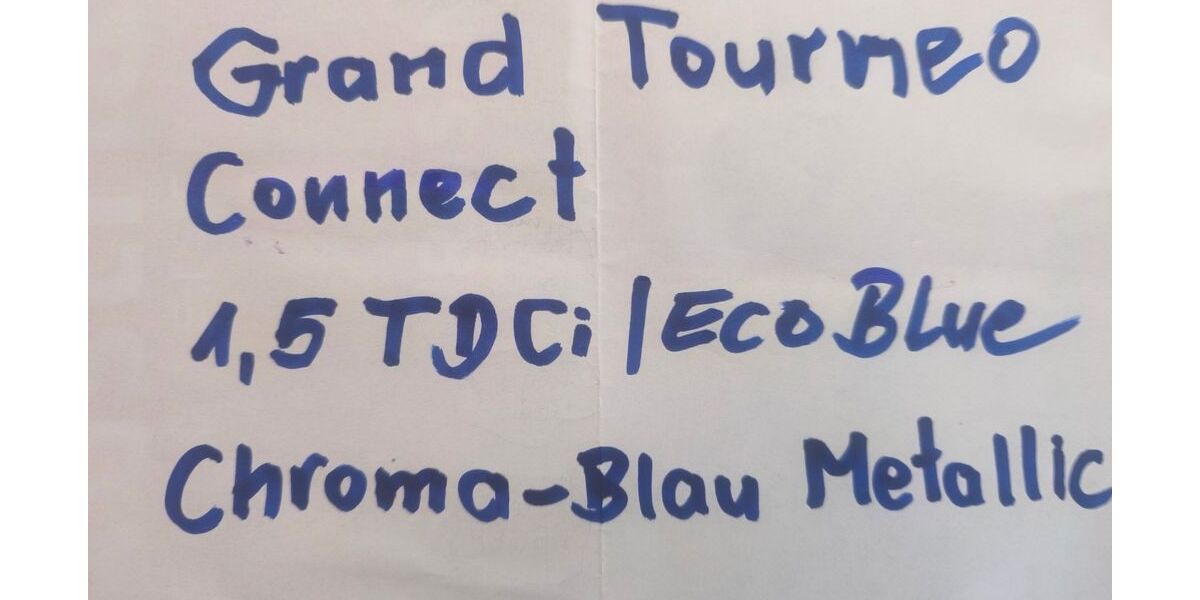 Grand Tourneo
Connect
1,5 TDCi / EcoBlue
Chroma-Blau Metallic